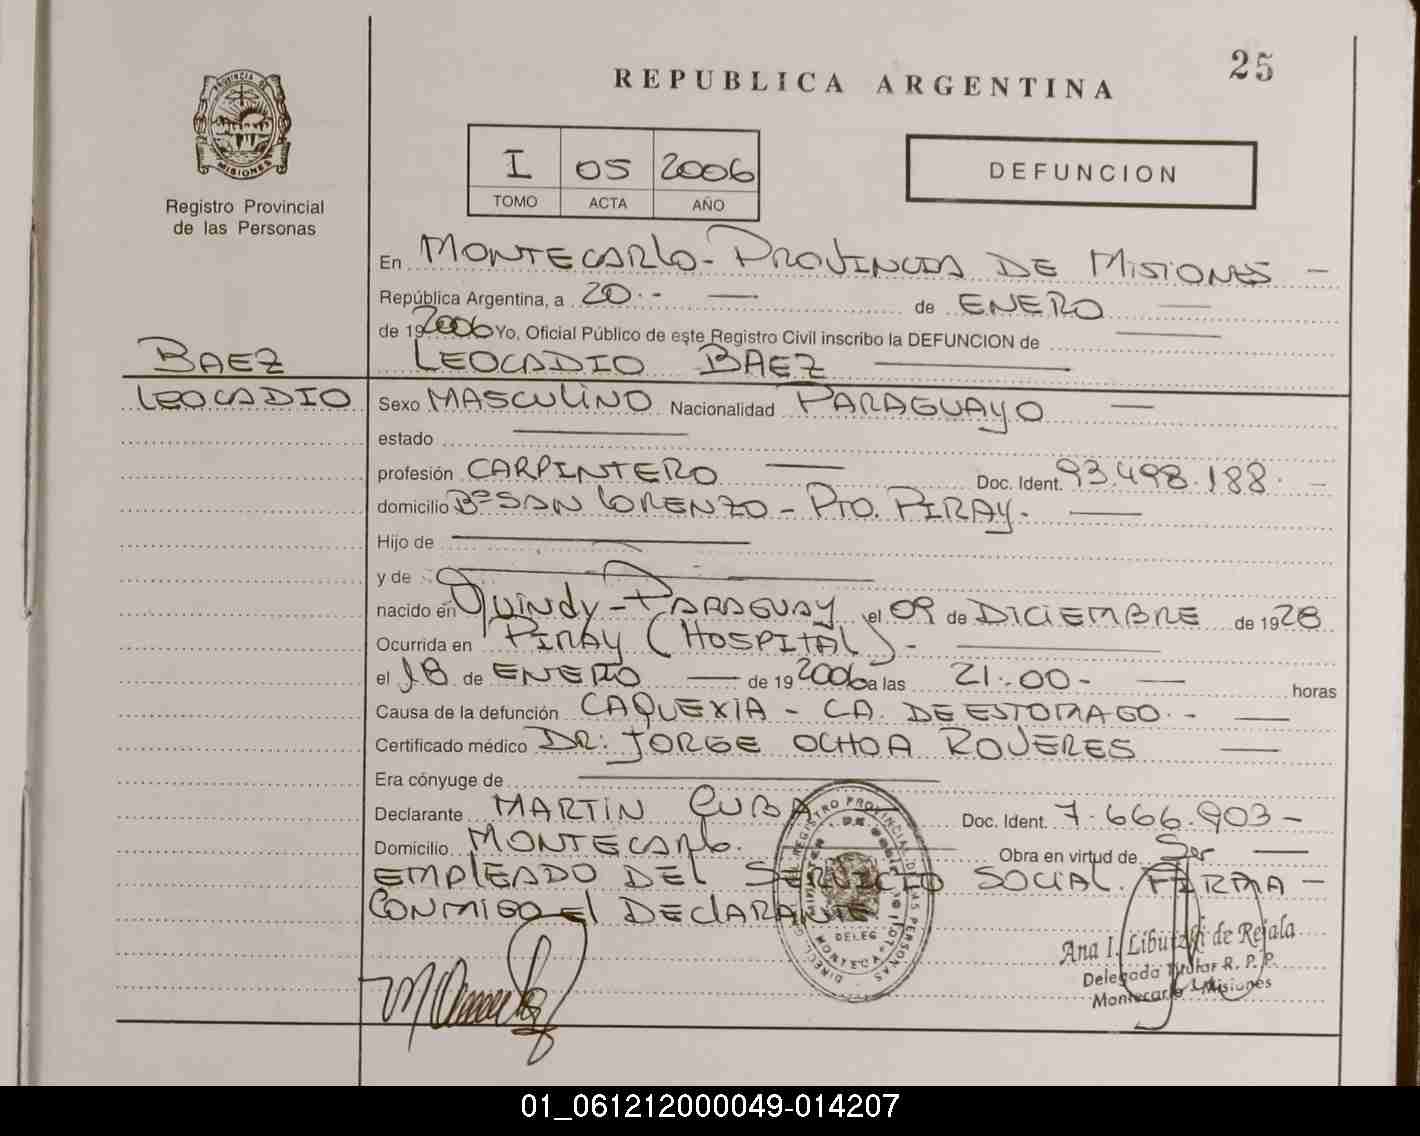 25
REPUBLICA ARGENTINA
PROVINCIA DE
MISIONES
Registro Provincial
de las Personas
I 05 2006
TOMO ACTA AÑO
DEFUNCION
En MONTECARLO - PROVINCIA DE MISIONES -
República Argentina, a 20.- — de ENERO —
de 192006 Yo, Oficial Público de este Registro Civil inscribo la DEFUNCION de —
BAEZ LEOCADIO BAEZ —
LEOCADIO Sexo MASCULINO Nacionalidad PARAGUAYO —
estado —
profesión CARPINTERO — Doc. Ident. 93.498.188. -
domicilio Bº SAN LORENZO - PTO. PIRAY. —
Hijo de —
y de —
nacido en Quindy - PARAGUAY el 09 de DICIEMBRE de 1928
Ocurrida en PIRAY (HOSPITAL) - —
el 18 de ENERO — de 19 2006 a las 21:00 - — horas
Causa de la defunción CAQUEXIA - CA. DE ESTOMAGO. - —
Certificado médico DR: JORGE OCHOA ROVERES —
Era cónyuge de —
Declarante MARTIN CUBA Doc. Ident. 7.666.903 -
Domicilio MONTECARLO. — Obra en virtud de Ser —
EMPLEADO DEL SERVICIO SOCIAL. FIRMA -
CONMIGO El DECLARANTE
REGISTRO PROVINCIAL DE LAS PERSONAS
DELEG
MONTECA
Ana I. Libutzki de Rejala
Delegada Titular R. P. P.
Montecarlo - Misiones
01_061212000049-014207